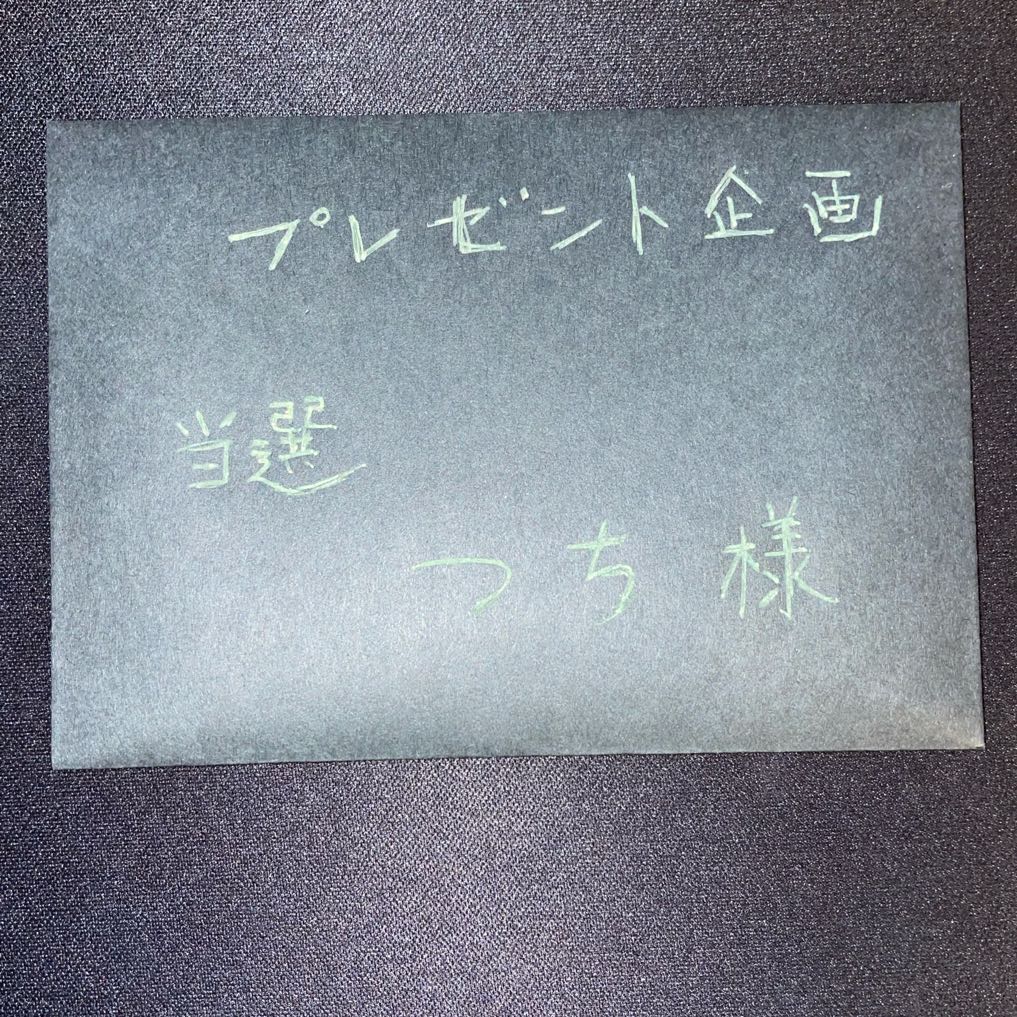 プレゼント企画
当選
つち様